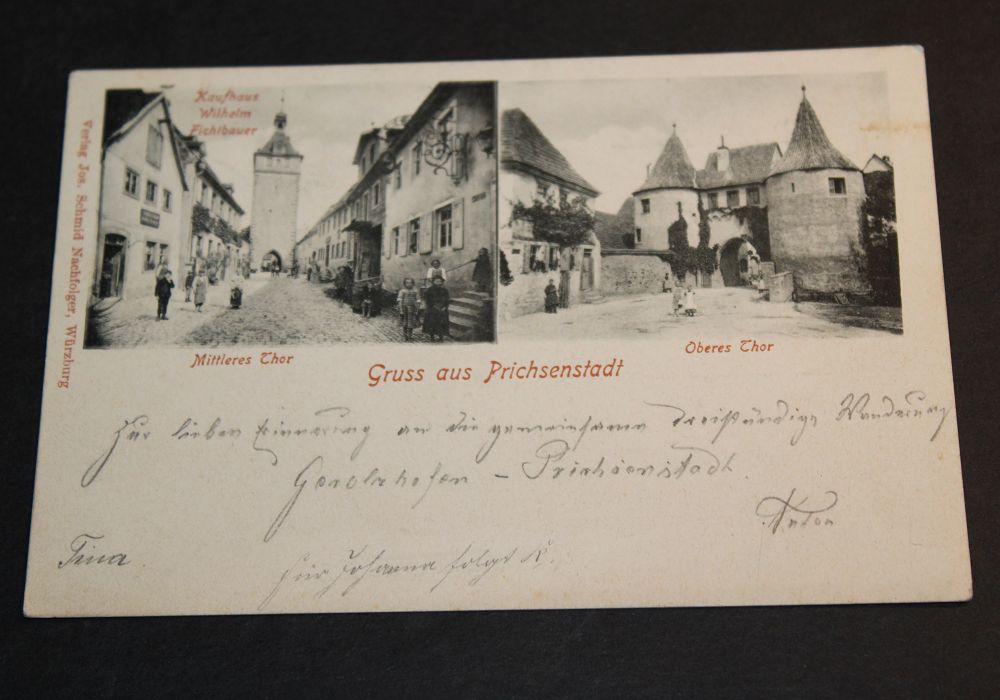 Kaufhaus
Wilhelm
Fichtbauer
Verlag Jos. Schmid Nachfolger, Würzburg
Mittleres Thor
Oberes Thor
Gruss aus Prichsenstadt
Zur lieben Erinnerung an die gemeinsame dreistündige Wanderung
Gerolzhofen - Prichsenstadt.
Anton
Tina
für Johanna folgt K.